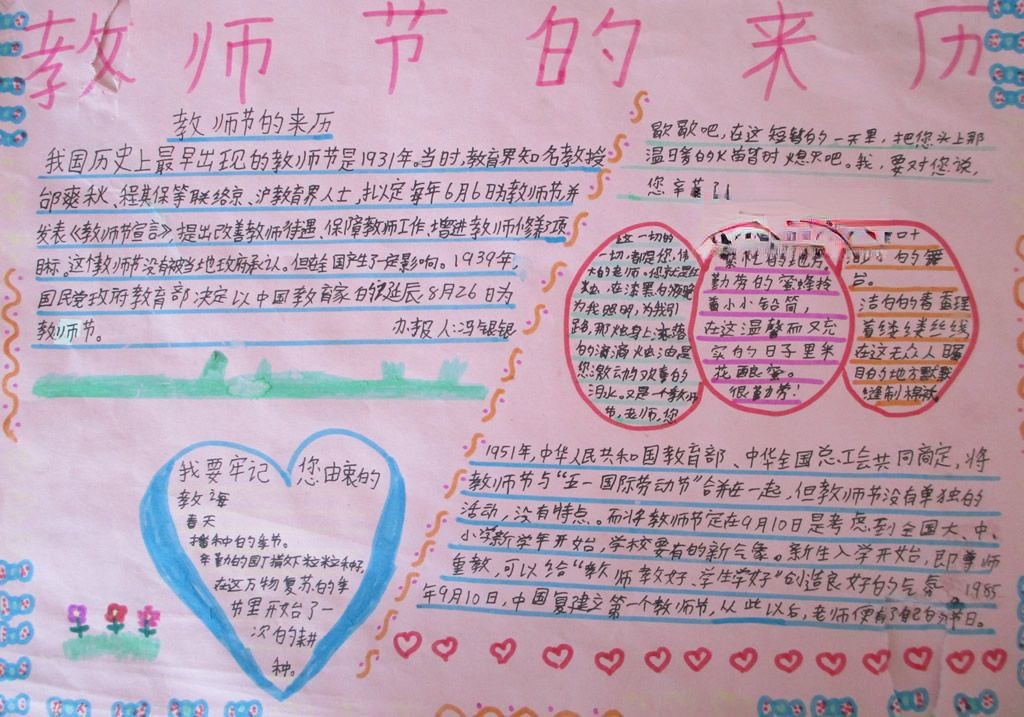 教师节的来历
教师节的来历
我国历史上最早出现的教师节是1931年。当时,教育界知名教授
邰爽秋、程其保等联络京、沪教育界人士,拟定每年6月6日为教师节,并
发表《教师节宣言》提出改善教师待遇、保障教师工作、增进教师修养3项
目标。这个教师节没有被当地政府承认。但在全国产生了一定影响。1939年,
国民党政府教育部决定以中国教育家的诞辰8月26日为
教师节。 办报人:冯银银
歇歇吧,在这短暂的一天里,把您头上那
温日雾的火苗暂时熄灭吧。我,要对您说,
您辛苦了!
这一切的
一切,都是您,伟
大的老师。您就是红
烛,在漆黑的夜晚
为我照明,为我引
路,那烛身上滚落
的滴滴烛油是
您激动的欢喜的
泪水。又是一个教师
节,老师,您
的地方
勤劳的蜜蜂拎
着小小铅筒,
在这温馨而又充
实的日子里采
花酿蜜。
很勤劳!
的舞
台。
洁白的春蚕理
着缕缕丝线
在这无众人瞩
目的地方默默
缝制棉袄。
我要牢记您由衷的
教诲
春天
播种的季节。
辛勤的园丁播下粒粒种子,
在这万物复苏的季
节里开始了一
次的耕
种。
1951年,中华人民共和国教育部、中华全国总工会共同商定,将
教师节与“五一国际劳动节”合并在一起,但教师节没有单独的
活动,没有特点。而将教师节定在9月10日是考虑到全国大、中、
小学新学年开始,学校要有的新气象。新生入学开始,即尊师
重教,可以给“教师教好、学生学好”创造良好的气氛。1985
年9月10日,中国复建立第一个教师节,从此以后,老师便有了自己的节日。